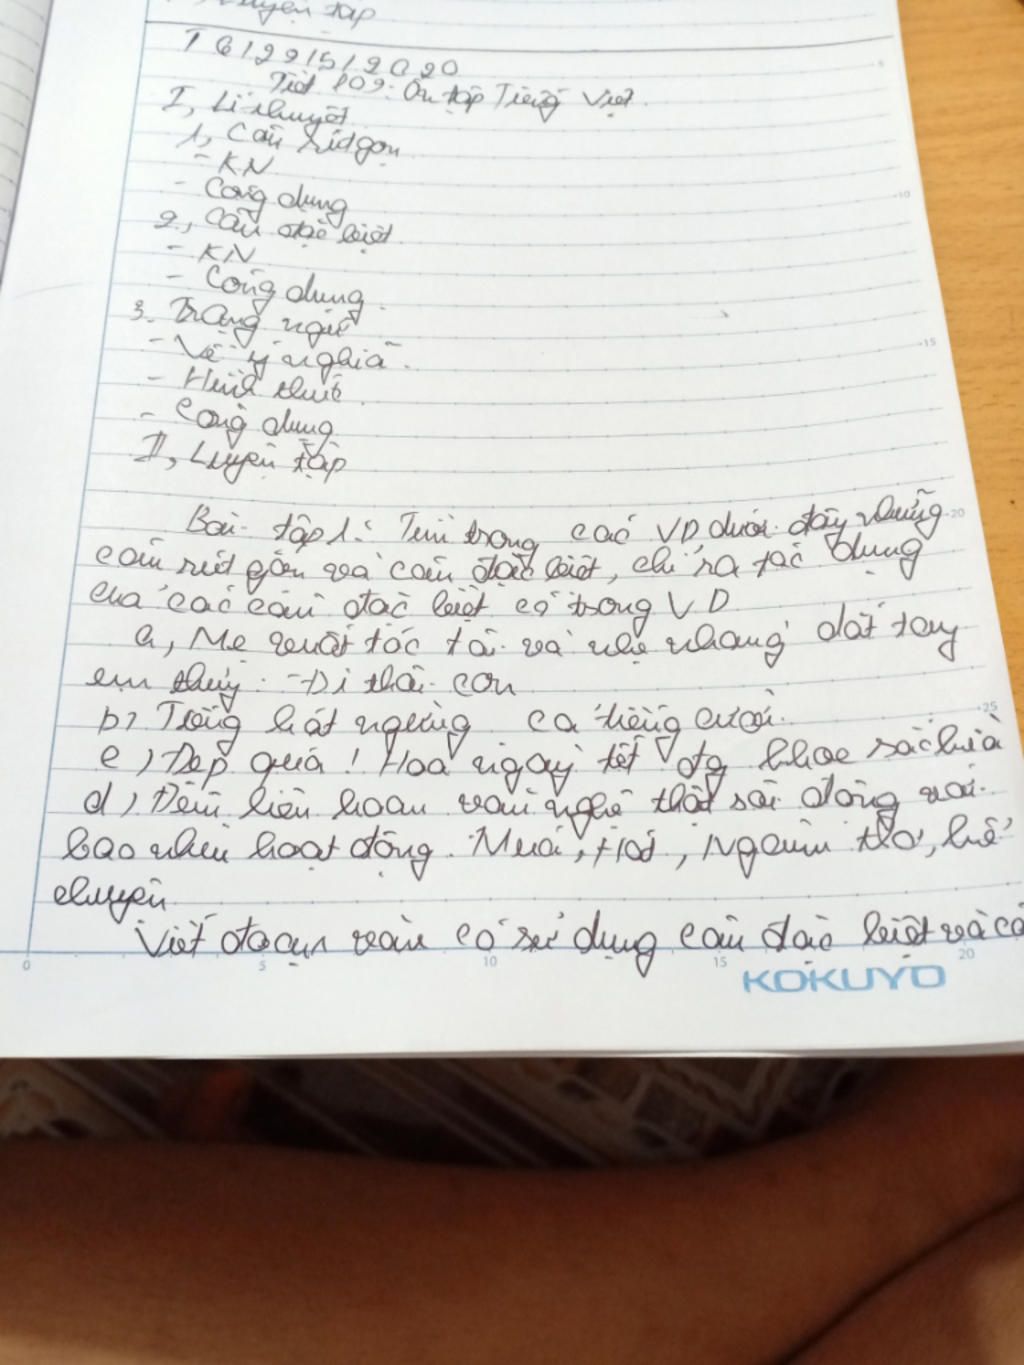 Luyện tập
T6/29/5/2020
Tiết 109: Ôn tập Tiếng Việt.
I, Lí thuyết
1, Câu rút gọn
- KN
- Công dụng
2, Câu đặc biệt
- KN
- Công dụng.
3. Trạng ngữ
- Về ý nghĩa.
- Hình thức
- Công dụng
II, Luyện tập
Bài tập 1: Tìm trong các VD dưới đây những
câu rút gọn và câu đặc biệt, chỉ ra tác dụng
của các câu đặc biệt có trong VD
a, Mẹ vuốt tóc tôi và nhẹ nhàng dắt tay
em thủy: - Đi thôi con
b, Tiếng hát ngừng cả tiếng cười.
c) Đẹp quá! Hoa ngày tết đg khoe sắc
d, Đêm liên hoan văn nghệ thật sôi động với
bao nhiêu hoạt động. Múa, Hát, Ngâm thơ, kể
chuyện
Viết đoạn văn có sử dụng câu đặc biệt và
0 5 10 15 20
KOKUYO
5
10
15
20
25